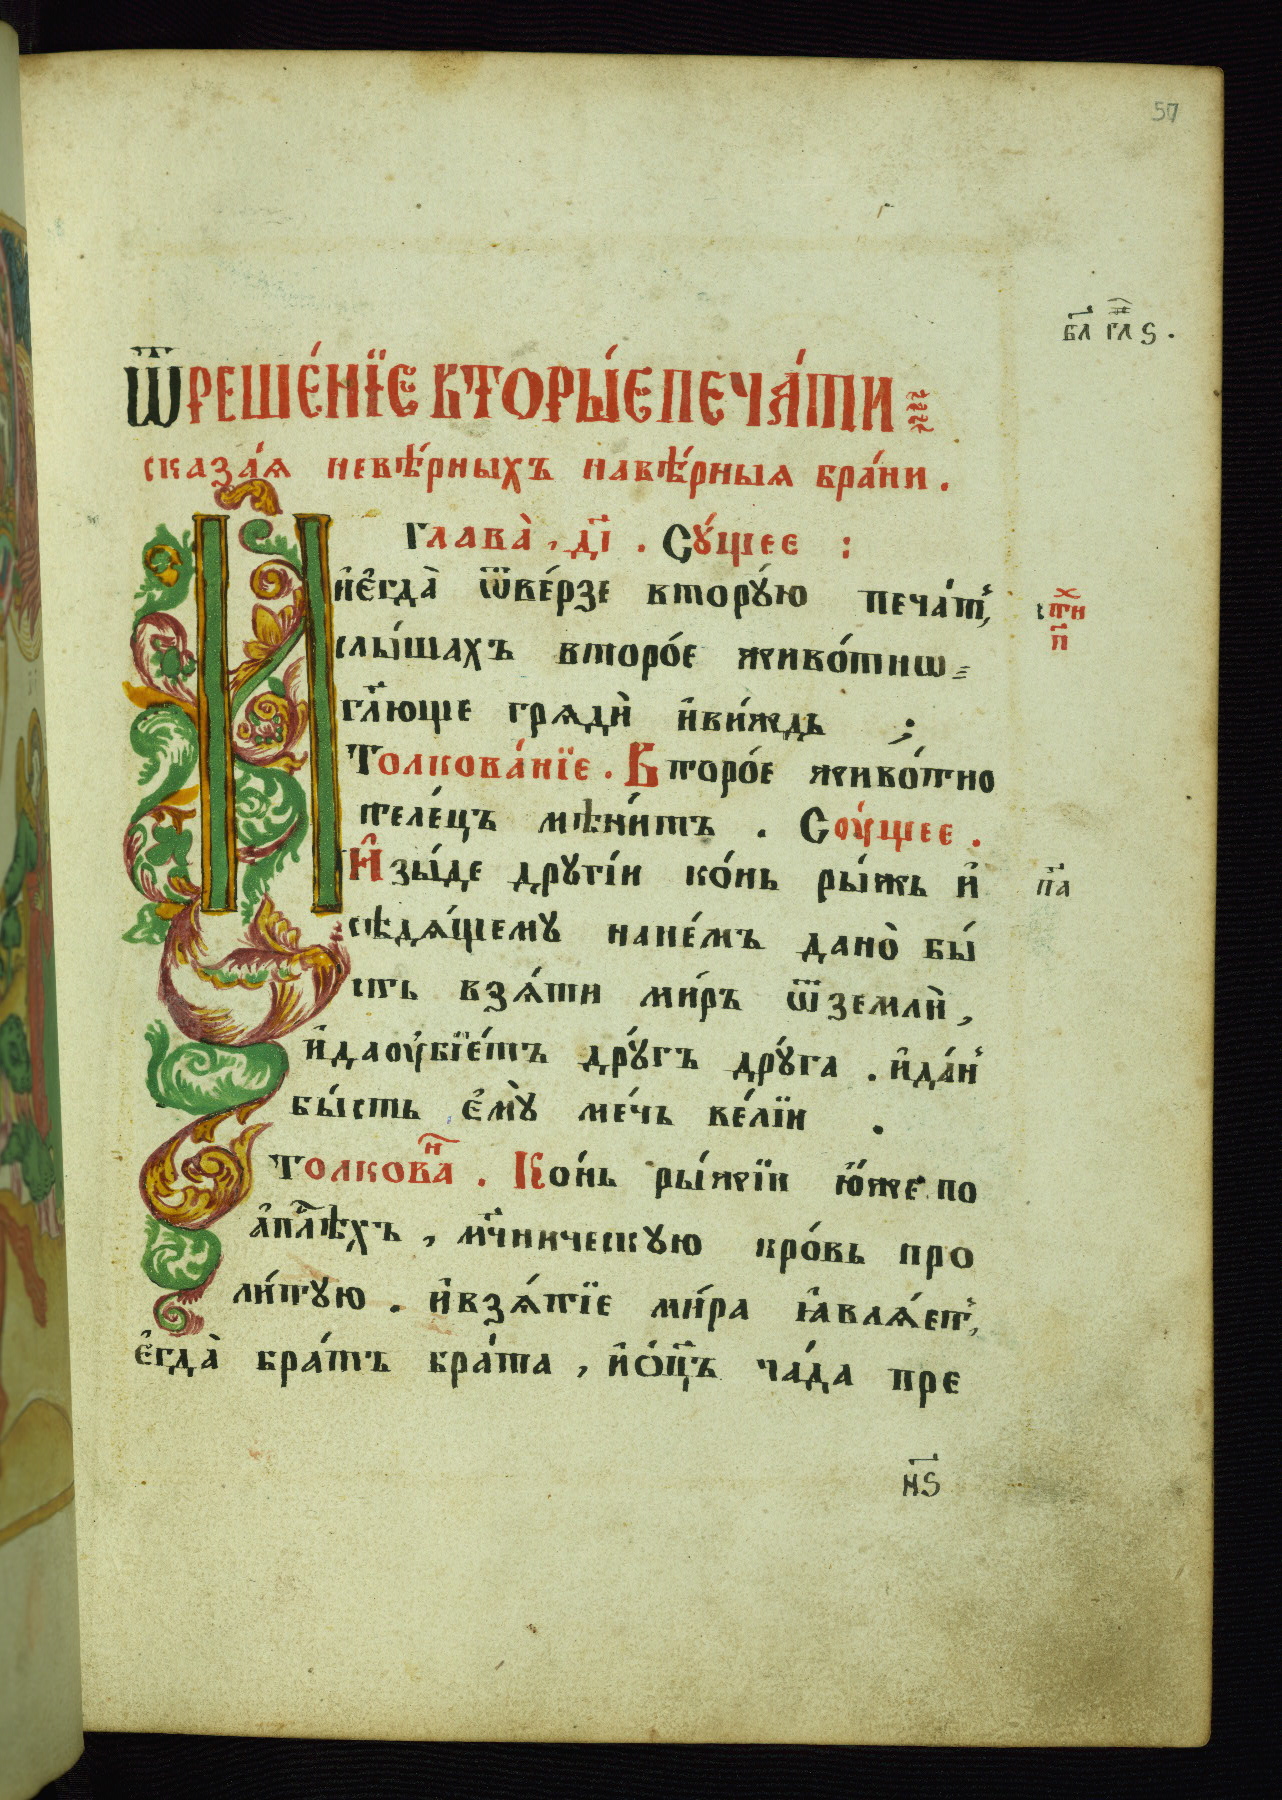 57
бл҃ гл҃ ѕ .
Ѿреше́нїе вторы́е печа́ти
сказа́ѧ невѣ́рныхъ навѣ́рныѧ бра́ни .
Глава̀ . д҃і . Сꙋ́щее :
И҆є҆гда̀ ѿве́рзе вторꙋ́ю печа́т,
слы́шахъ второ́е живо́тнѡ
гл҃юще грѧдѝ и҆ви́ждь ;
Толкова́нїе . Второ́е живо́тно
теле́цъ мѣни́тъ . Соу́щее .
И҆зы́де дрꙋгі́и ко́нь ры́жь и҆
сѣдѧ́щемꙋ нане́мъ дано̀ бы́
сть взѧ́ти ми́ръ ѿземлѝ ,
и҆даоу҆бїе́тъ дрꙋ́гъ дрꙋ́га . и҆да́н
бы́сть є҆мꙋ̀ ме́чь ве́лїи .
Толкова҃н . Ко́нь ры́жїи ю҆́же по
а҆пл҃ѣхъ , мч҃ническꙋю кро́вь про
ли́тꙋю . и҆взѧ́тїе ми́ра ꙗ҆влѧ́ет,
є҆гда̀ бра́тъ бра́та , и҆ѻц҃ъ ча́да пре
стих
п҃
п҃а
н҃ѕ